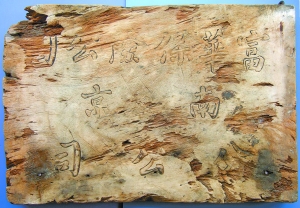 富華保險公司
南京
公司